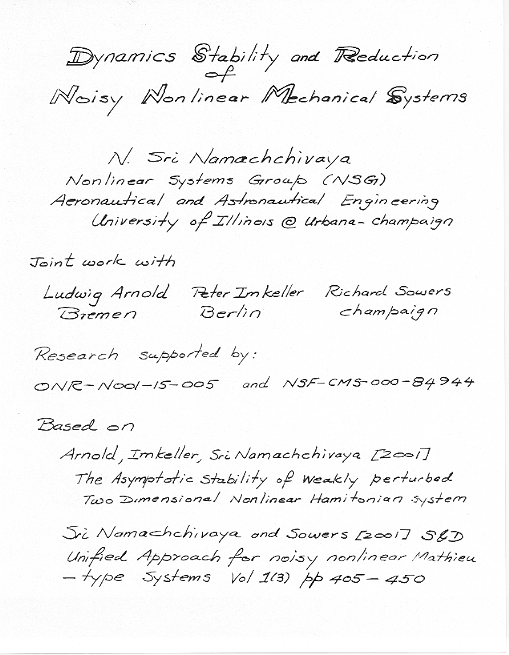 Dynamics Stability and Reduction
of
Noisy Nonlinear Mechanical Systems
N. Sri Namachchivaya
Nonlinear Systems Group (NSG)
Aeronautical and Astronautical Engineering
University of Illinois @ Urbana-champaign
Joint work with
Ludwig Arnold Peter Imkeller Richard Sowers
Bremen Berlin champaign
Research supported by:
ONR-N001-15-005 and NSF-CMS-000-84944
Based on
Arnold, Imkeller, Sri Namachchivaya [2001]
The Asymptotic Stability of Weakly perturbed
Two Dimensional Nonlinear Hamitonian system
Sri Namachchivaya and Sowers [2001] S&D
Unified Approach for noisy nonlinear Mathieu
-type Systems Vol 1(3) pp 405-450